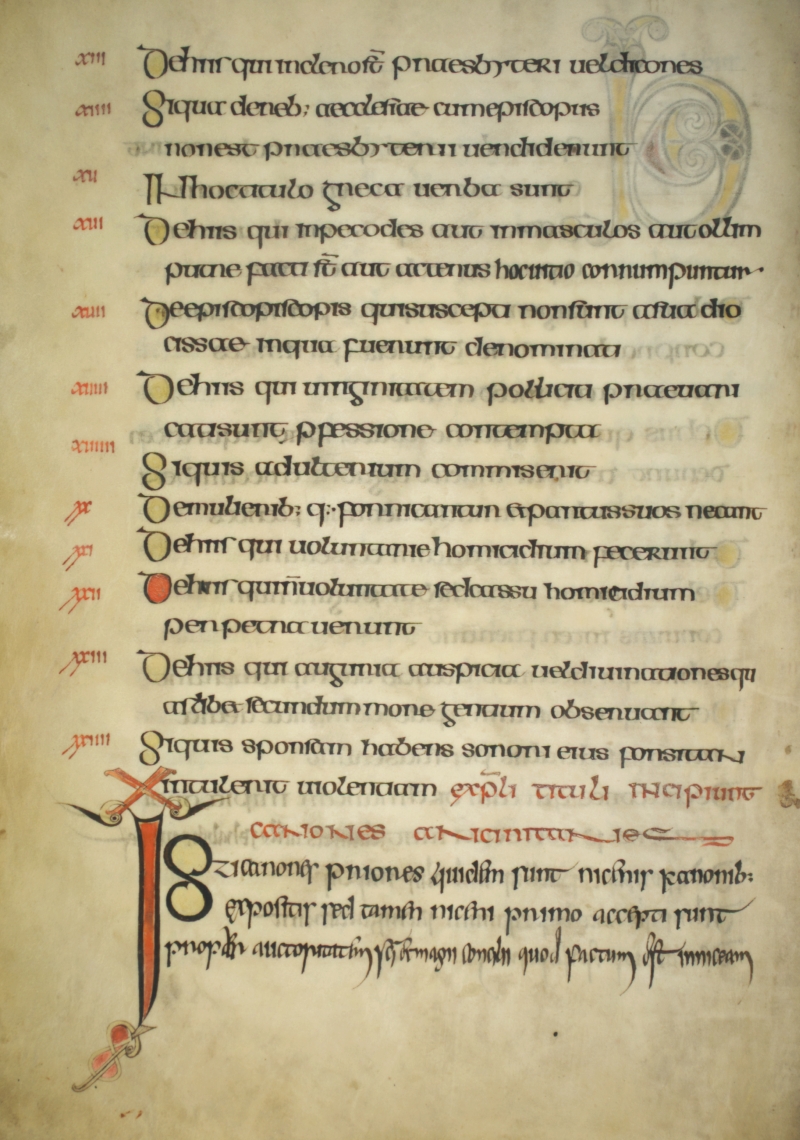 xiii Dehis qui inclero st̄ praesbyteri uel dicones
xiiii Siqua dereb; aecclesiae cumepiscopus
nonest praesbyterii uendiderunt
xu IN hoc titulo greca uerba sunt
xui Dehiis qui inpecodes aut inmasculos aut ollim
purae facti st̄ aut actenus hocuitio corrumpuntur.
xuii Deepiscopiscopis quisuscepti nonsunt astia dio
cissae inqua fuerunt denominati
xuiii Dehiis qui uirginitatem polliciti praeuari
catisunt pfessione contempta
xuiiii Siquis adulterium commiserit
xx Demulierib; q; fornicantur et partus suos necant
xxi Dehis qui uoluntarie homicidium fecerunt
xxii Dehis quin̄uoluntate sedcassu homicidium
perpetrauerunt
xxiii Dehiis qui auguria auspicia ueldiuinationesqu
aslibet secundum more gentium obseruant
xxiiii Siquis sponsam habens sorori eius forsitan
intulerit uiolentiam expl̄i tituli incipiunt
canones
Isti canones priores quidem sunt nicenis kanonib;
expositis sed tamen niceni primo accepti sunt
propter auctoritatem sc̄i et magni concilii quod factum est inniceam